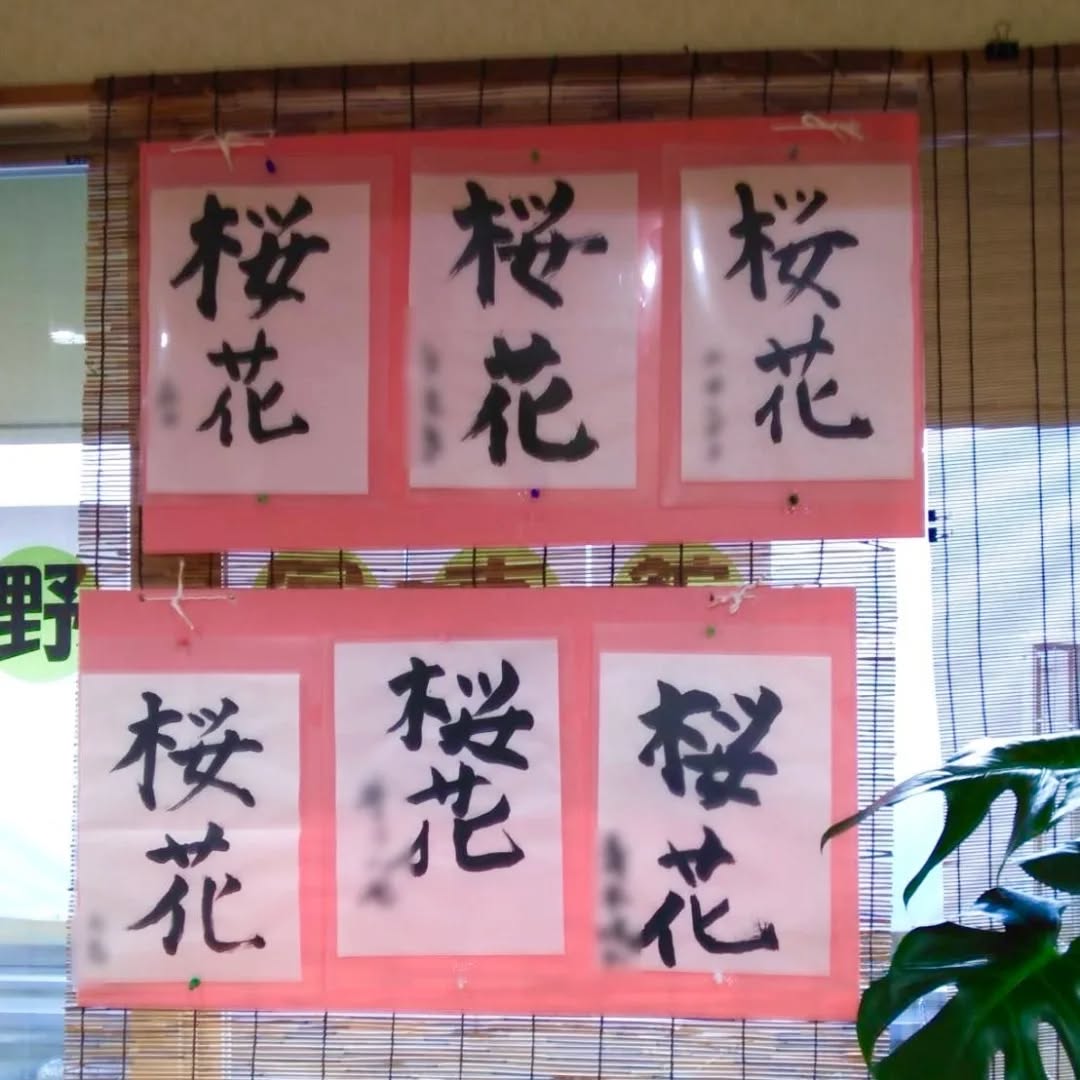 桜花
桜花
桜花
野
桜花
桜花
桜花